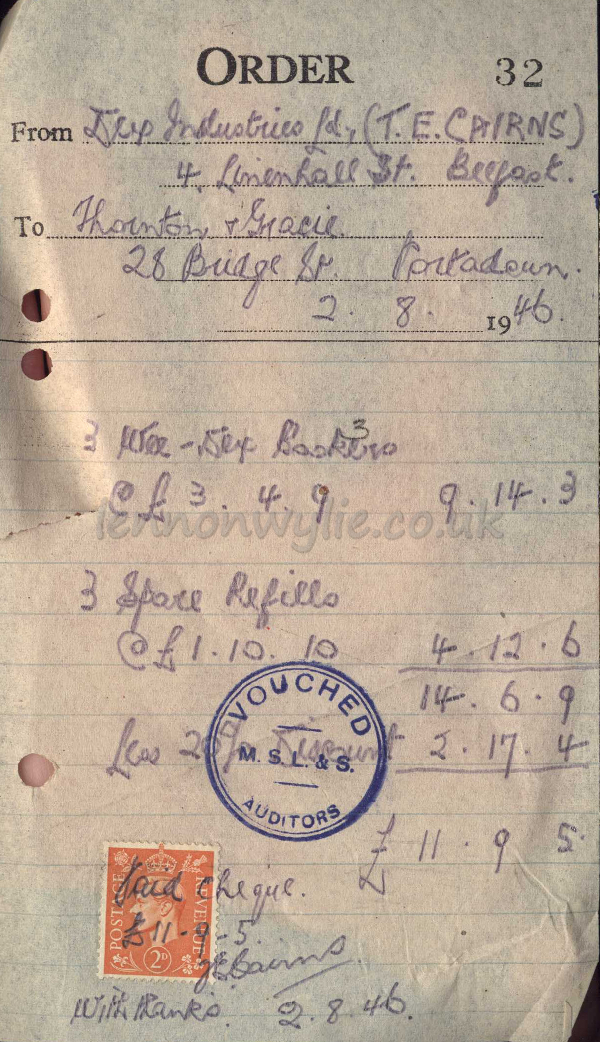 ORDER 32
From Dex Industries Ld, (T. E. CAIRNS)
4, Linenhall St. Belfast.
To Thornton & Gracie.
28 Bridge St. Portadown.
2. 8. 1946.
3 Wee-Dex Books
3
@ £3. 4. 9 9. 14. 3
lennonwylie.co.uk
3 Spare Refills
@ £1. 10. 10 4. 12. 6
14. 6. 9
Less 20% Discount 2. 17. 4
VOUCHED
M. S. L. & S.
AUDITORS
£ 11. 9 5.
POSTAGE REVENUE
2D
Paid Cheque.
£11-9-5.
T E Cairns
With thanks. 2. 8. 46.